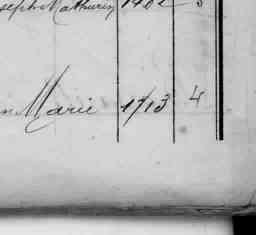 seph Mathurin 1902 5
n Marie 1713 4